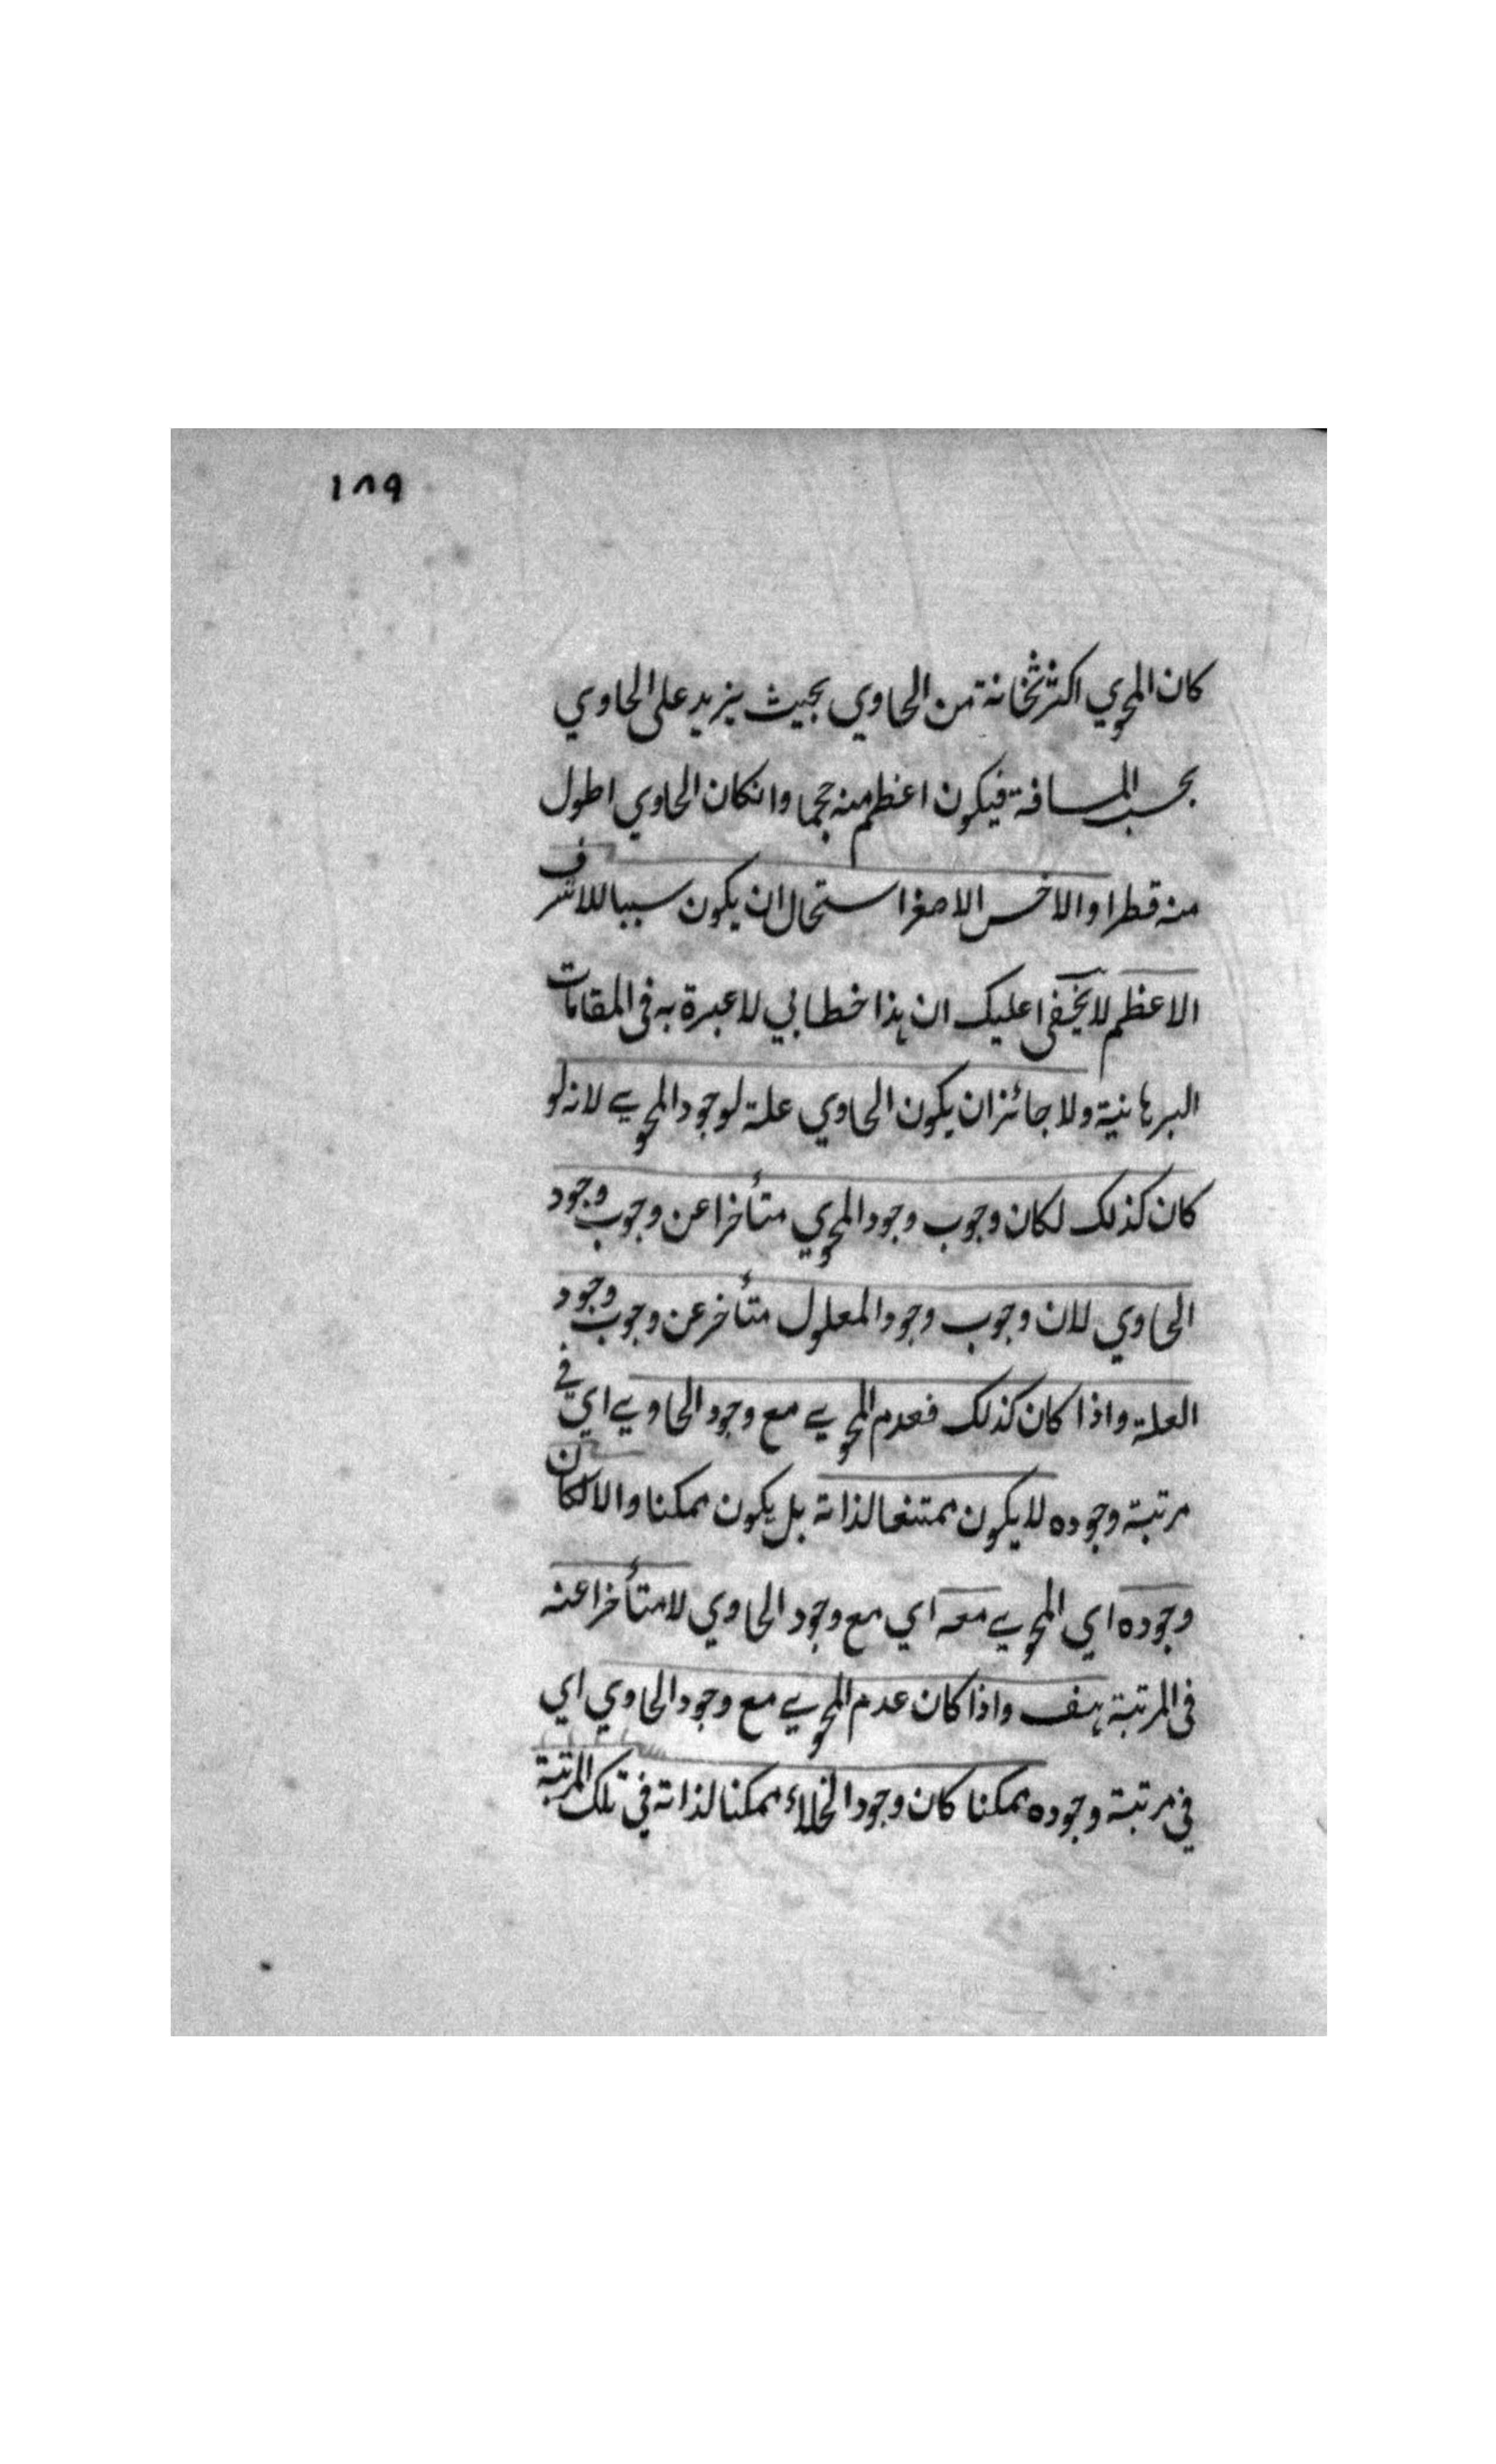 ١٨٩
كان المحوي اكثر ثخانة من الحاوي بحيث يزيد على الحاوي
بحسب المسافة فيكون اعظم منه حجما وانكان الحاوي اطول
منه قطرا والاخس الاصغر استحال ان يكون سببا للاشرف
الاعظم لا يخفى عليك ان هذا خطابي لا عبرة به فى المقامات
البرهانية ولا جائز ان يكون الحاوي علة لوجود المحوي لانه لو
كان كذلك لكان وجوب وجود المحوي متأخرا عن وجوب وجود
الحاوي لان وجوب وجود المعلول متأخر عن وجوب وجود
العلة واذا كان كذلك فعدم المحوي مع وجود الحاوي اي في
مرتبة وجوده لا يكون ممتنعا لذاته بل يكون ممكنا والا لكان
وجوده اي المحوي معه اي مع وجود الحاوي لا متأخرا عنه
فى المرتبة هف واذا كان عدم المحوي مع وجود الحاوي اي
في مرتبة وجوده ممكنا كان وجود الخلاء ممكنا لذاته في تلك المرتبة